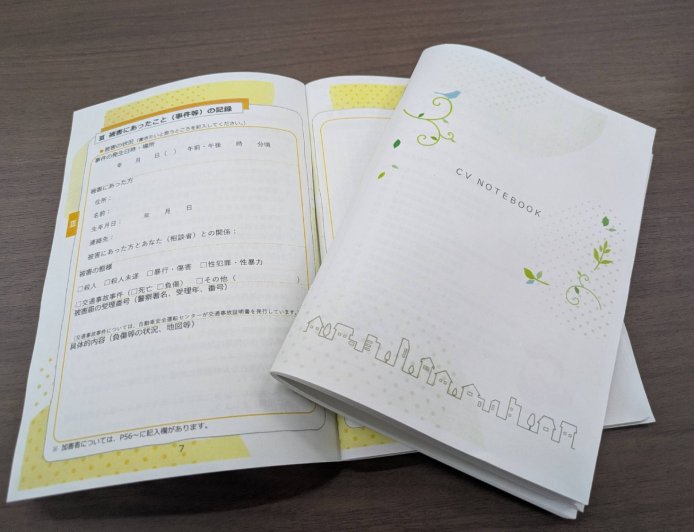 Ⅲ 被害にあったこと（事件等）の記録
●被害の状況（書きたいと思うところを記入してください。）
事件の発生日時・場所
年 月 日（ ） 午前・午後 時 分頃
被害にあった方
住所：
名前：
生年月日： 年 月 日
連絡先：
被害にあった方とあなた（相談者）との関係：
被害の態様
□殺人 □殺人未遂 □暴行・傷害 □性犯罪・性暴力
□交通事故事件（□死亡 □負傷） □その他（ ）
被害届の受理番号（警察署名、受理年、番号）
（交通事故事件については、自動車安全運転センターが交通事故証明書を発行しています。）
具体的内容（負傷等の状況、地図等）
※ 加害者については、P56～に記入欄があります。
7
Ⅲ
CV NOTEBOOK